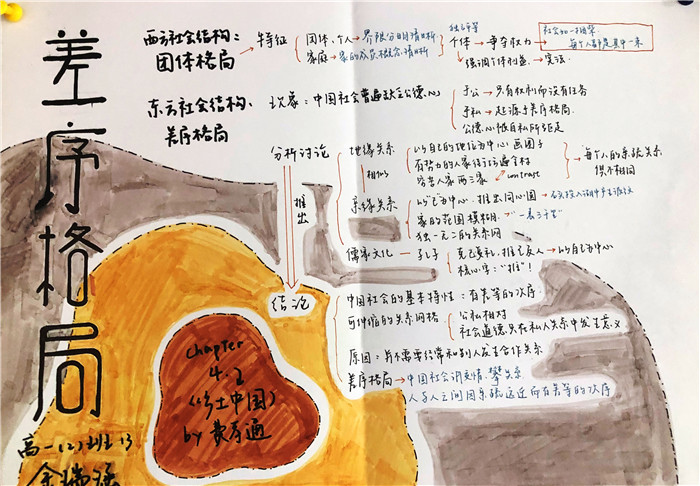 差序格局
西方社会结构：
团体格局
特征
团体、个人→界限分明清晰
家庭→家的成员概念清晰
独立平等
个体→争夺权力→
社会如一捆柴
每个人都是其中一束
强调个体利益→宪法
东方社会结构、
差序格局
现象：中国社会普遍缺乏公德心
于公→只有权利而没有任务
于私→起源于差序格局
公德心被自私所驱走
分析讨论
推出
地缘关系
以自己的地位为中心画圈子
有势力的人家
穷苦人家两三家
contrast
每个人的亲疏关系
俱不相同
相似
亲缘关系
以"己"为中心，推出同心圆
家的范围模糊→"一表三千里"
独一无二的关系网
儒家文化—孔子
克己复礼，推己及人→以自己为中心
核心字："推"！
结论
中国社会的基本特性：有差等的次序
可伸缩的关系网络
公私相对
社会道德只在私人关系中发生意义
原因：并不需要经常和别人发生合作关系
差序格局→中国社会讲交情，攀关系
人与人之间因亲疏远近而有差等的次序
chapter
4.2
《乡土中国》
by 费孝通
高一(2)班 13